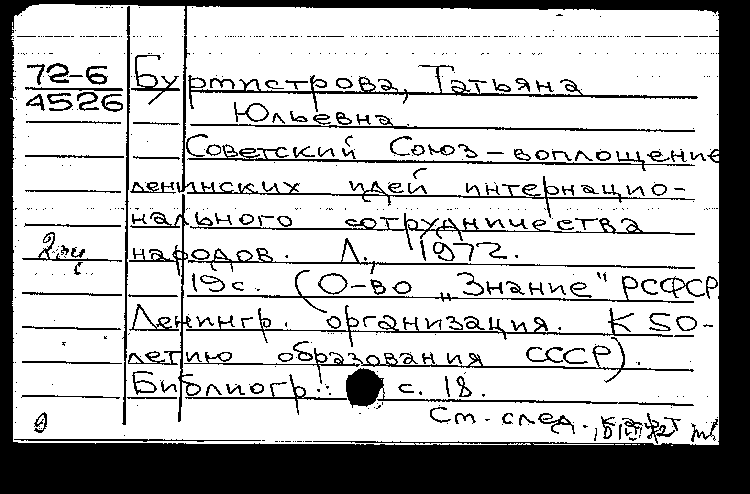 72-6
4526
Буртистрова, Татьяна
Юльевна.
Советский Союз – воплощение
ленинских идей интернацио-
нального сотрудничества
народов. Л., 1972.
19 с. (О-во „Знание" РСФСР
Ленингр. организация. К 50-
летию образования СССР).
Библиогр.: с. 18.
См. след.